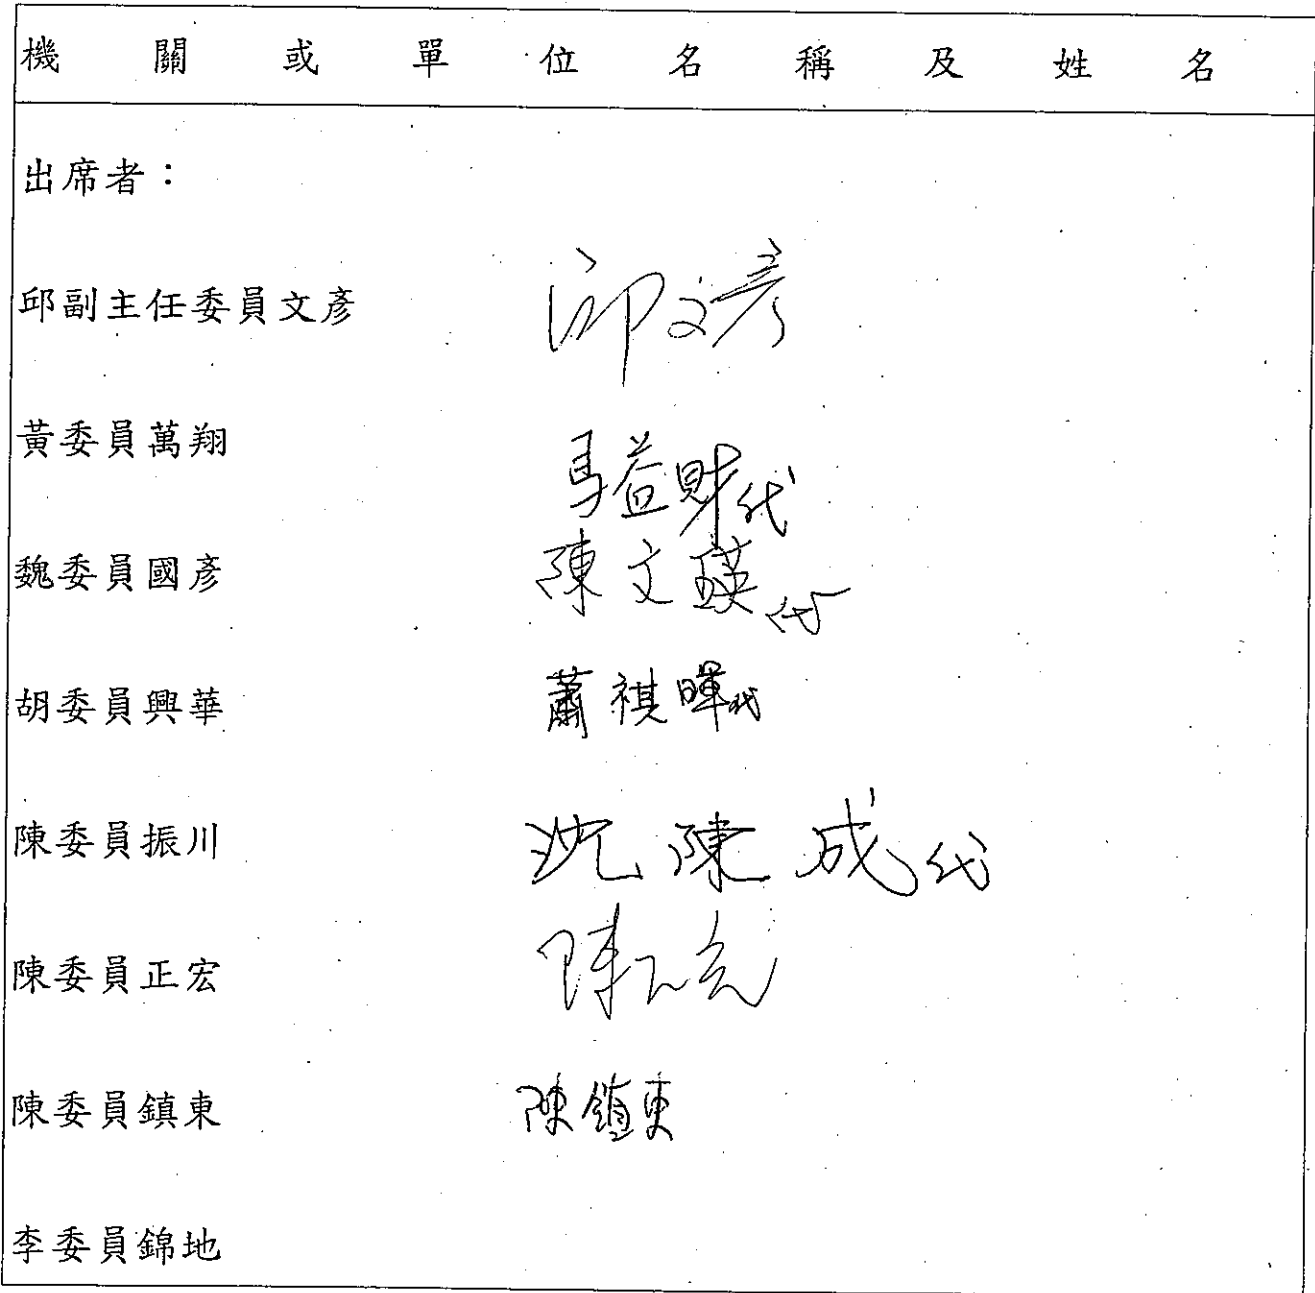 機關或單位名稱及姓名
出席者：
邱副主任委員文彥 邱文彥
黃委員萬翔 馬益財代
魏委員國彥 陳文瑛代
胡委員興華 蕭祺暉代
陳委員振川 沈陳成代
陳委員正宏 陳正宏
陳委員鎮東 陳鎮東
李委員錦地